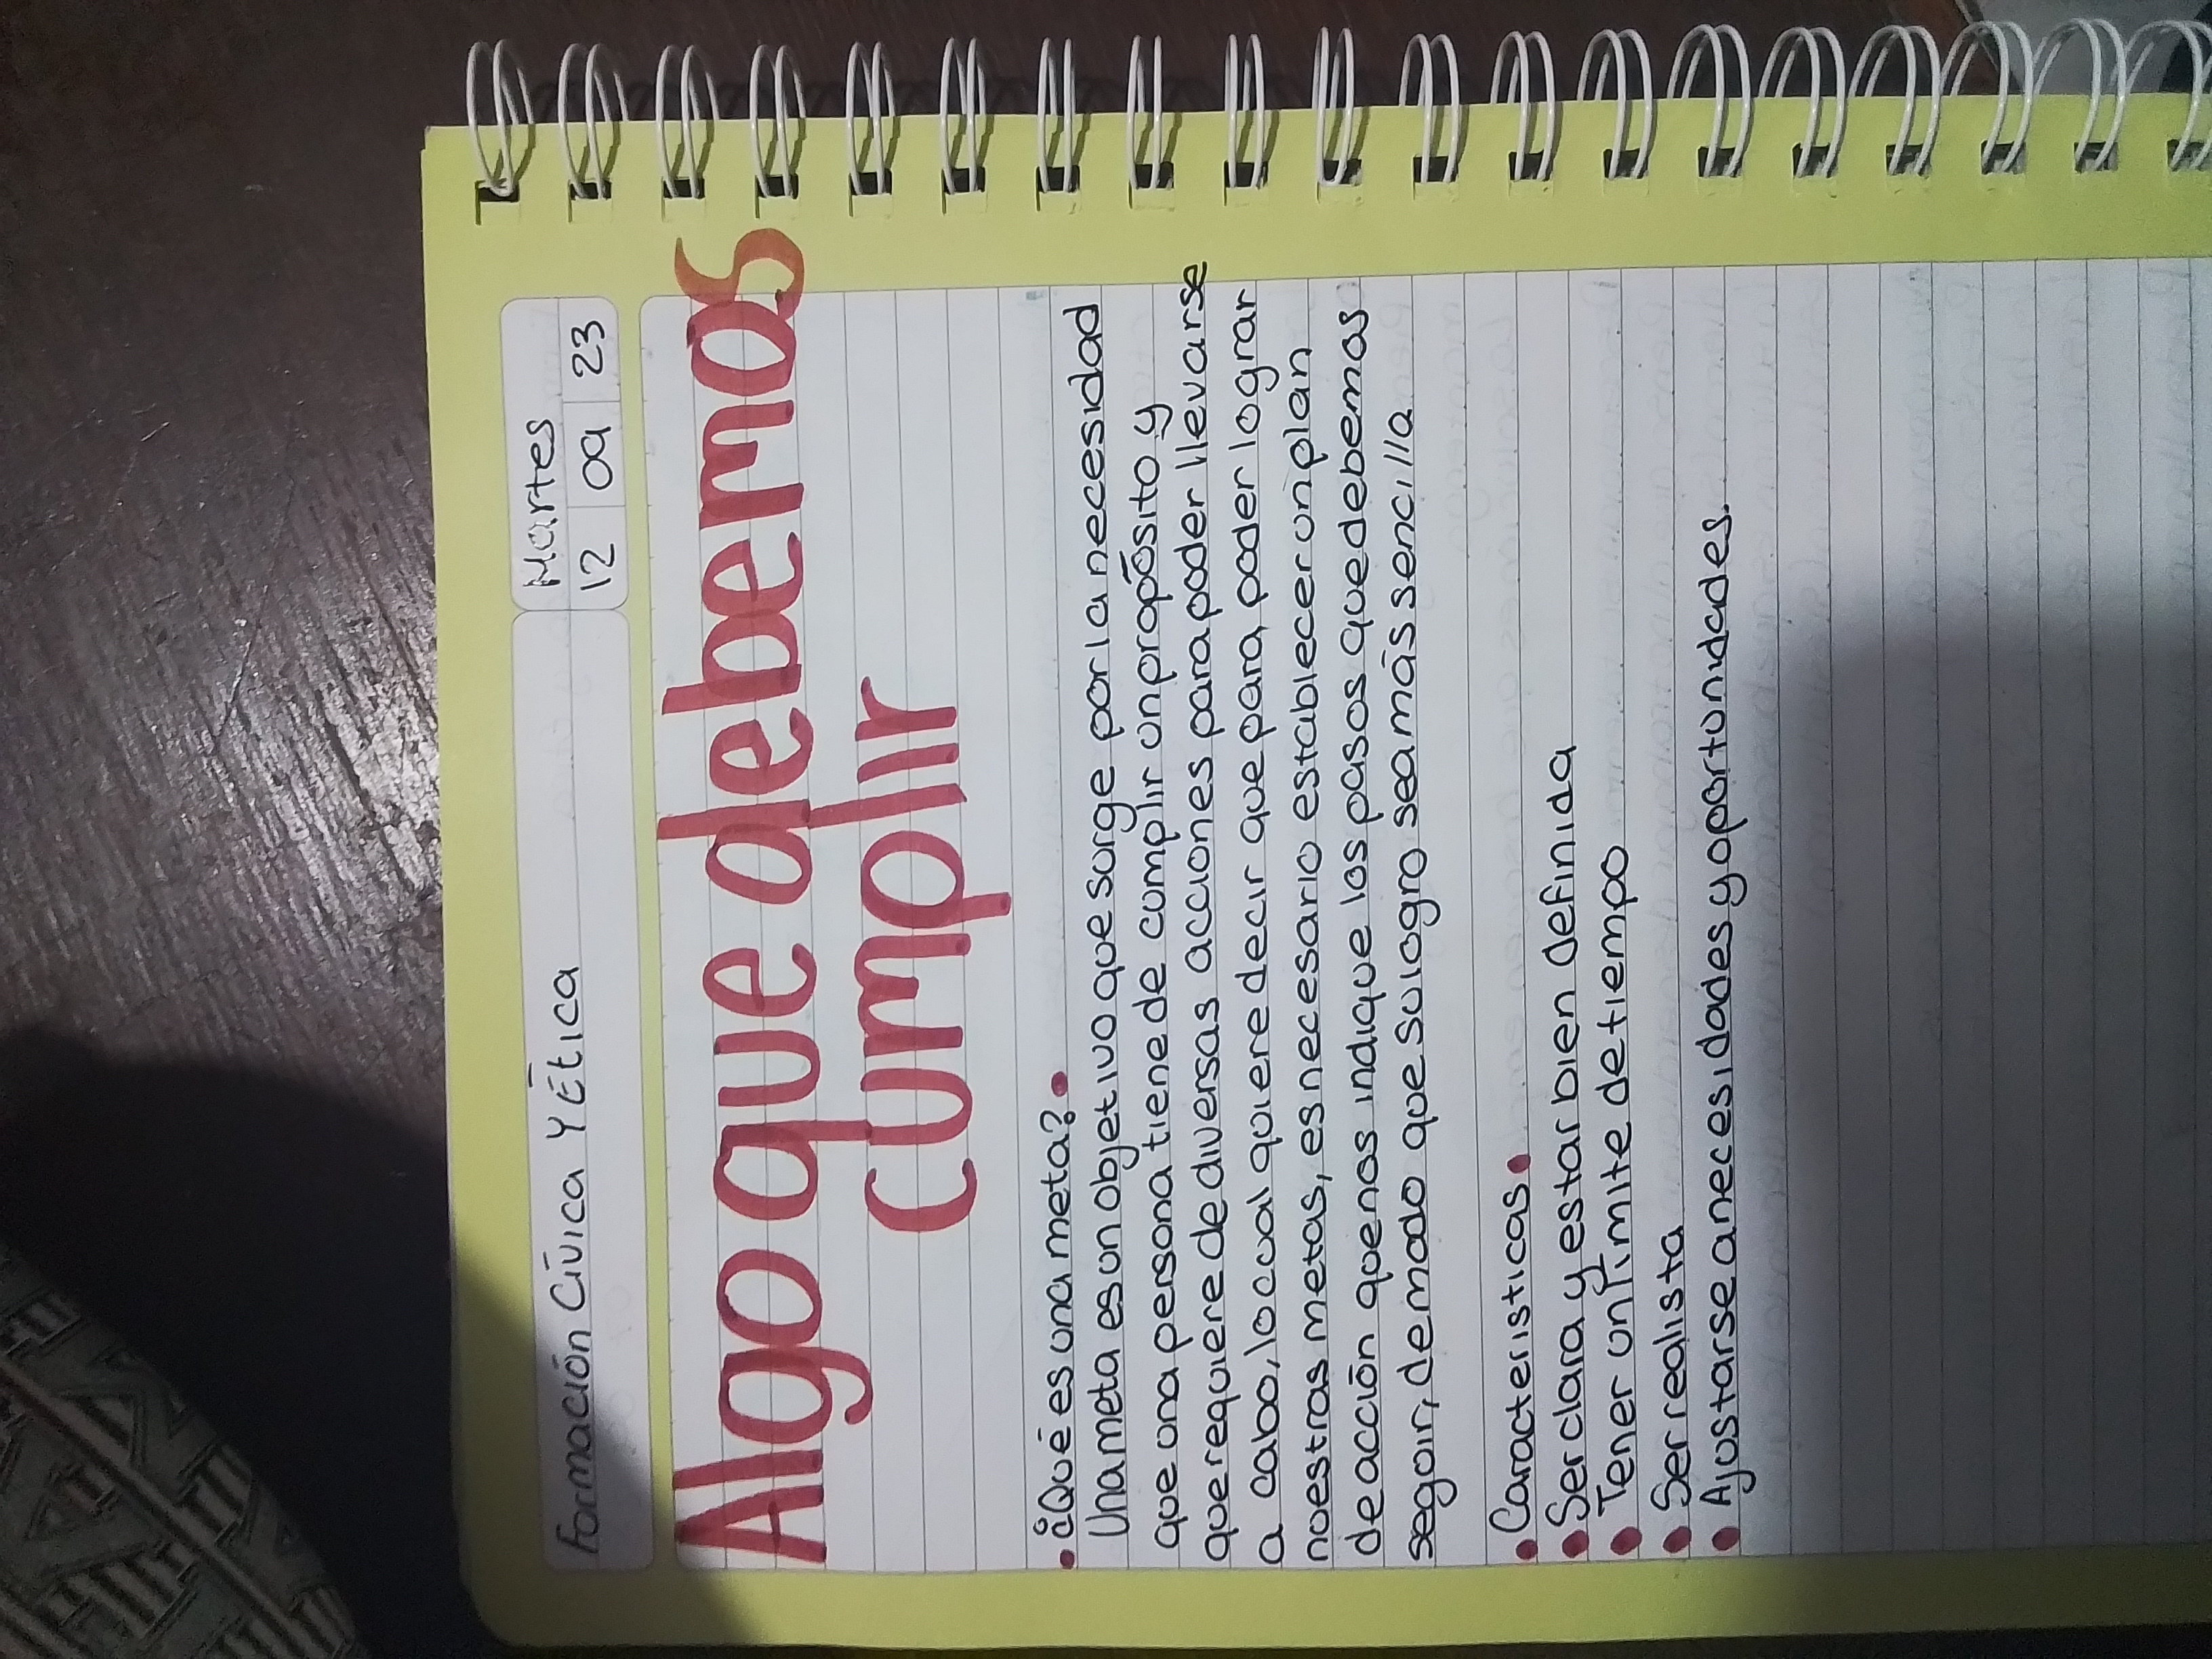 Formación Cívica Y Ética
Martes
12 09 23
Algo que debemos
cumplir
• ¿Qué es una meta? •
Una meta es un objetivo que surge por la necesidad
que una persona tiene de cumplir un propósito y
que requiere de diversas acciones para poder llevarse
a cabo, lo cual quiere decir que para, poder lograr
nuestras metas, es necesario establecer un plan
de acción que nos indique los pasos que debemos
seguir, de modo que su logro sea más sencilla
• Caracteristicas •
• Ser clara y estar bien definida
• Tener un límite de tiempo
• Ser realista
• Ajustarse a necesidades y oportunidades.